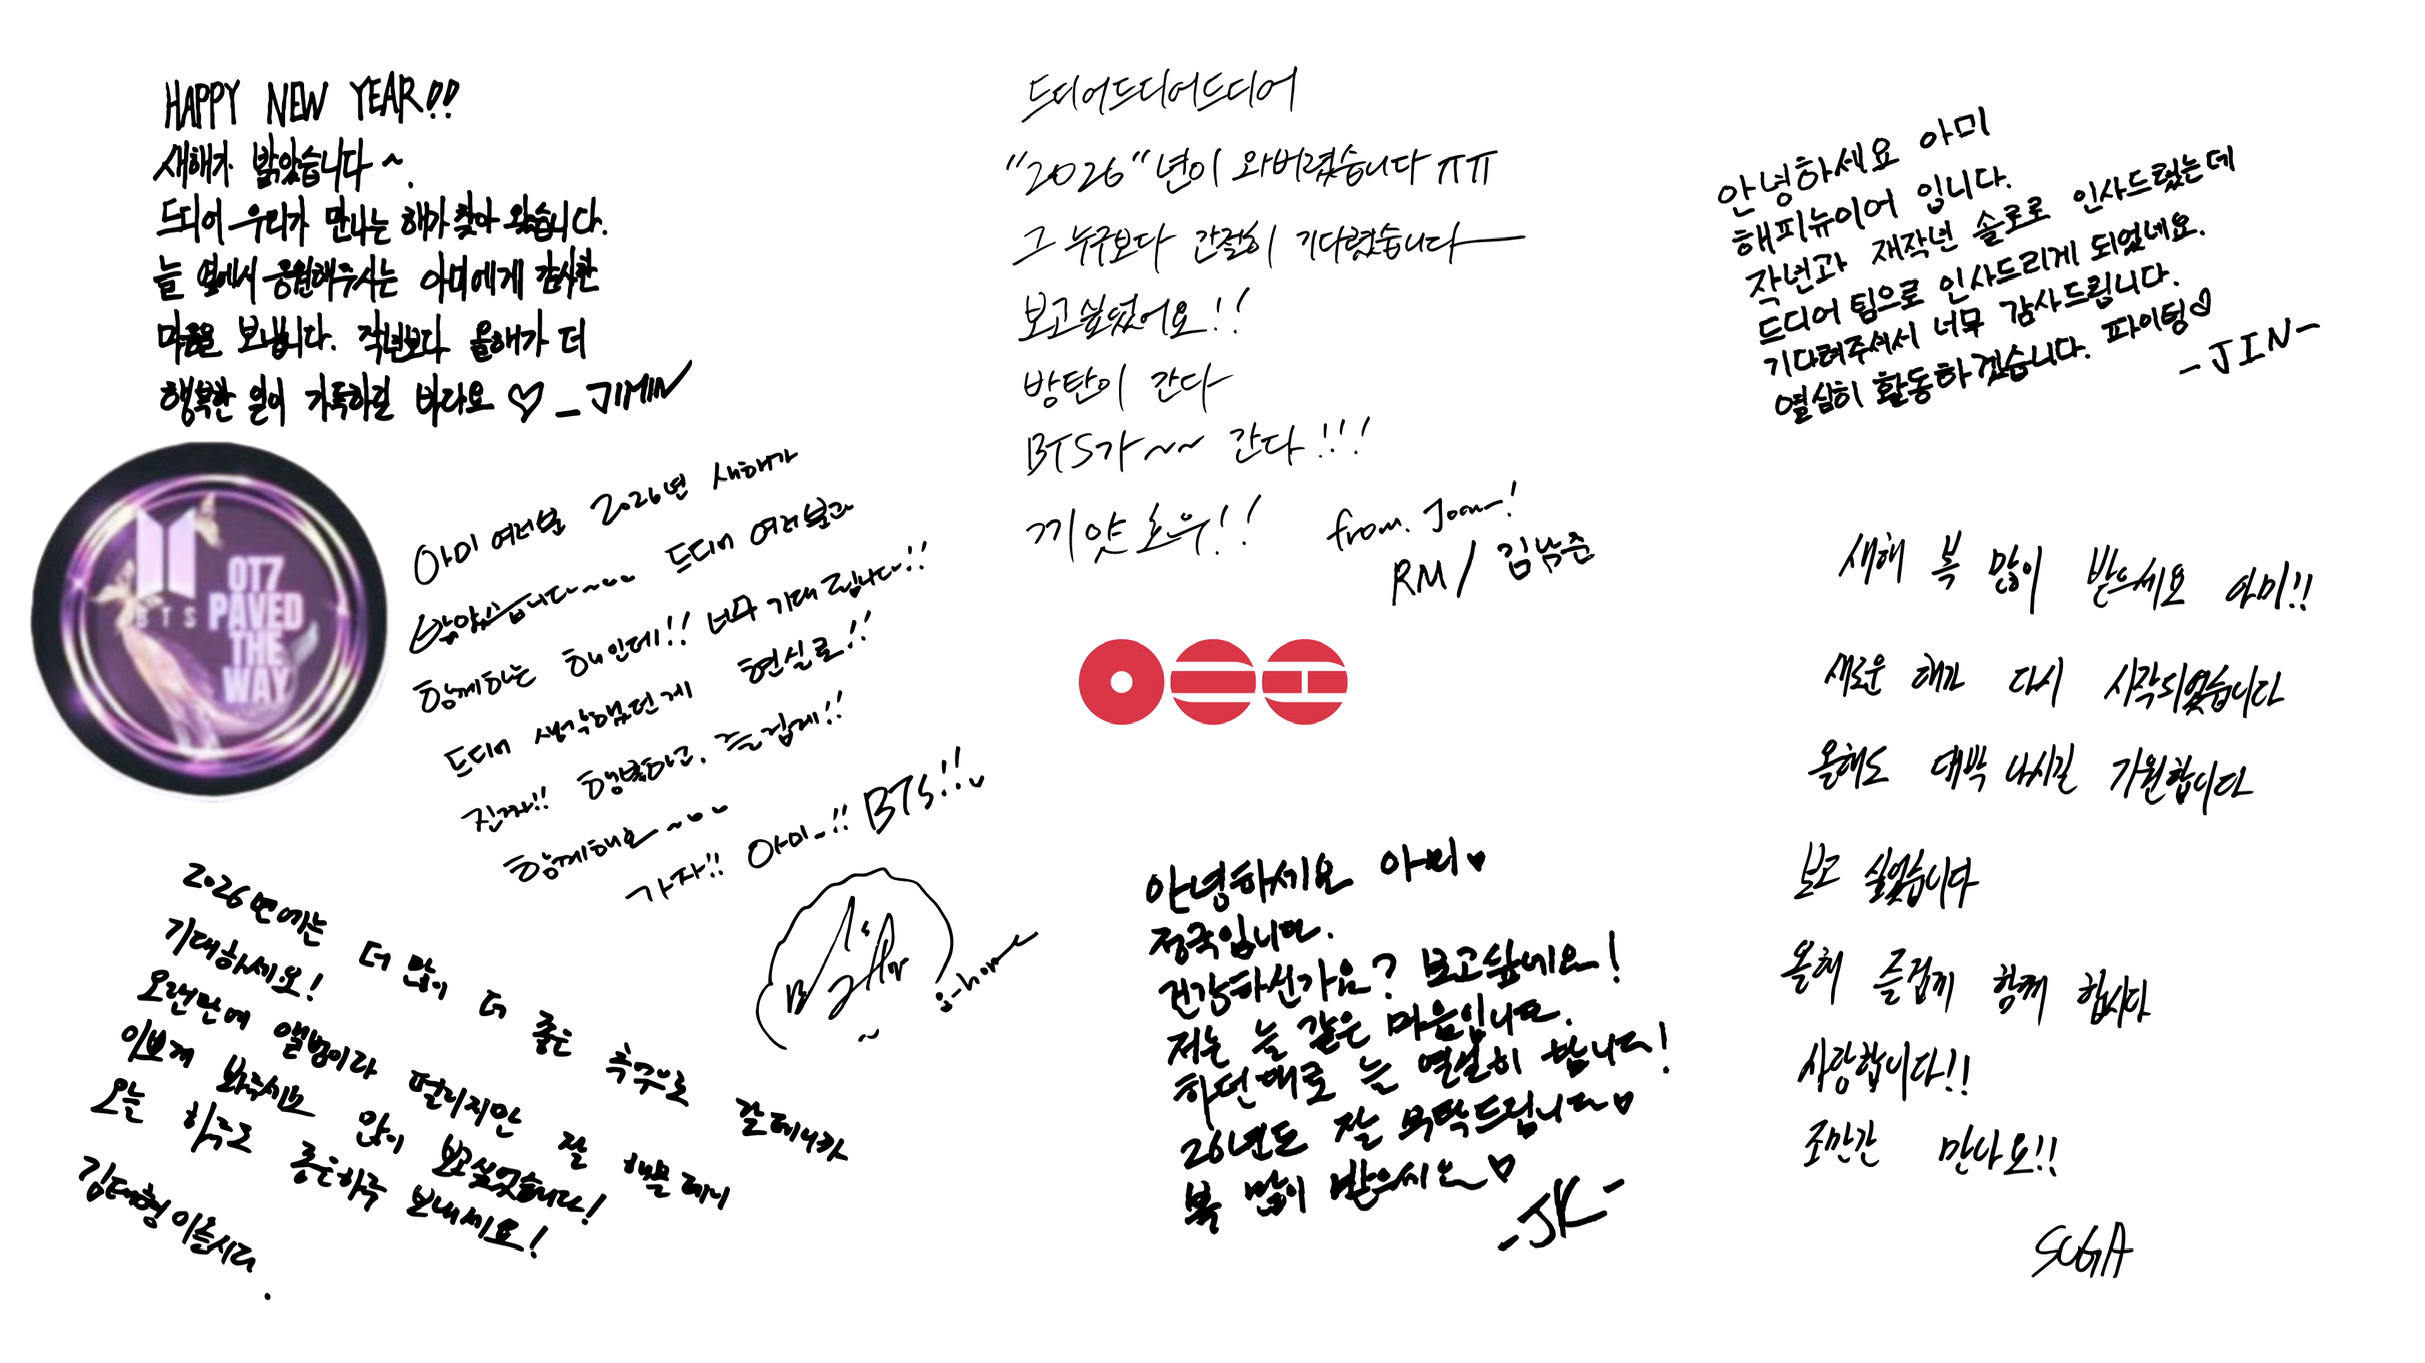 HAPPY NEW YEAR!!
새해가 밝았습니다~.
드디어 우리가 만나는 해가 찾아 왔습니다.
늘 옆에서 응원해주시는 아미에게 감사한
마음을 보냅니다. 작년보다 올해가 더
행복한 일이 가득하길 바라요 ♡ _JIMIN
BTS
OT7
PAVED
THE
WAY
아미 여러분 2026년 새해가
밝았습니다~ 드디어 여러분과
함께하는 해인데!! 너무 기대됩니다!!
드디어 생각했던게 현실로!!
진짜!! 행복하고, 즐겁게!!
함께해요~
가자!! 아미~!! BTS!!
j-hope
2026년에는 더 많이 더 좋은 추억으로 갈테니까
기대하세요!
오랜만에 앨범이라 떨리지만 잘 해볼테니
이쁘게 봐주세요 많이 보고싶었습니다!
오늘 하루도 좋은하루 보내세요!
김태형 이었습니다.
드디어드디어드디어
"2026"년이 와버렸습니다 ㅠㅠ
그 누구보다 간절히 기다렸습니다
보고싶었어요!!
방탄이 간다
BTS가~~ 간다!!!
끼얏호우!!
from. Joon~!
RM / 김남준
안녕하세요 아미♥
정국입니다.
건강하신가요? 보고싶네요!
저는 늘 같은 마음입니다.
하던대로 늘 열심히 합니다!
26년도 잘 부탁드립니다♡
복 많이 받으씨오♡
-JK-
안녕하세요 아미
해피뉴이어 입니다.
작년과 재작년 솔로로 인사드렸는데
드디어 팀으로 인사드리게 되었네요.
기다려주셔서 너무 감사드립니다.
열심히 활동하겠습니다. 파이팅♡
-JIN-
새해 복 많이 받으세요 아미!!
새로운 해가 다시 시작되었습니다
올해도 대박 나시길 기원합니다
보고 싶었습니다
올해 즐겁게 함께 합시다
사랑합니다!!
조만간 만나요!!
SUGA